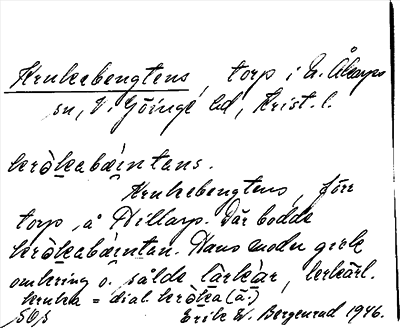 Krukabengtens, torp i N. Åkarps
sn, V. Göinge hd, Krist. l.
kròkabæintans.
Krukebengtens, förr
torp å Hillarp. Där bodde
kròkabæintan. Hans moder gick
omkring o. sålde lärkàr, lerkärl.
kruka = dial. kròka (ä:)
56/3 Erik W. Bergenrud 1946.